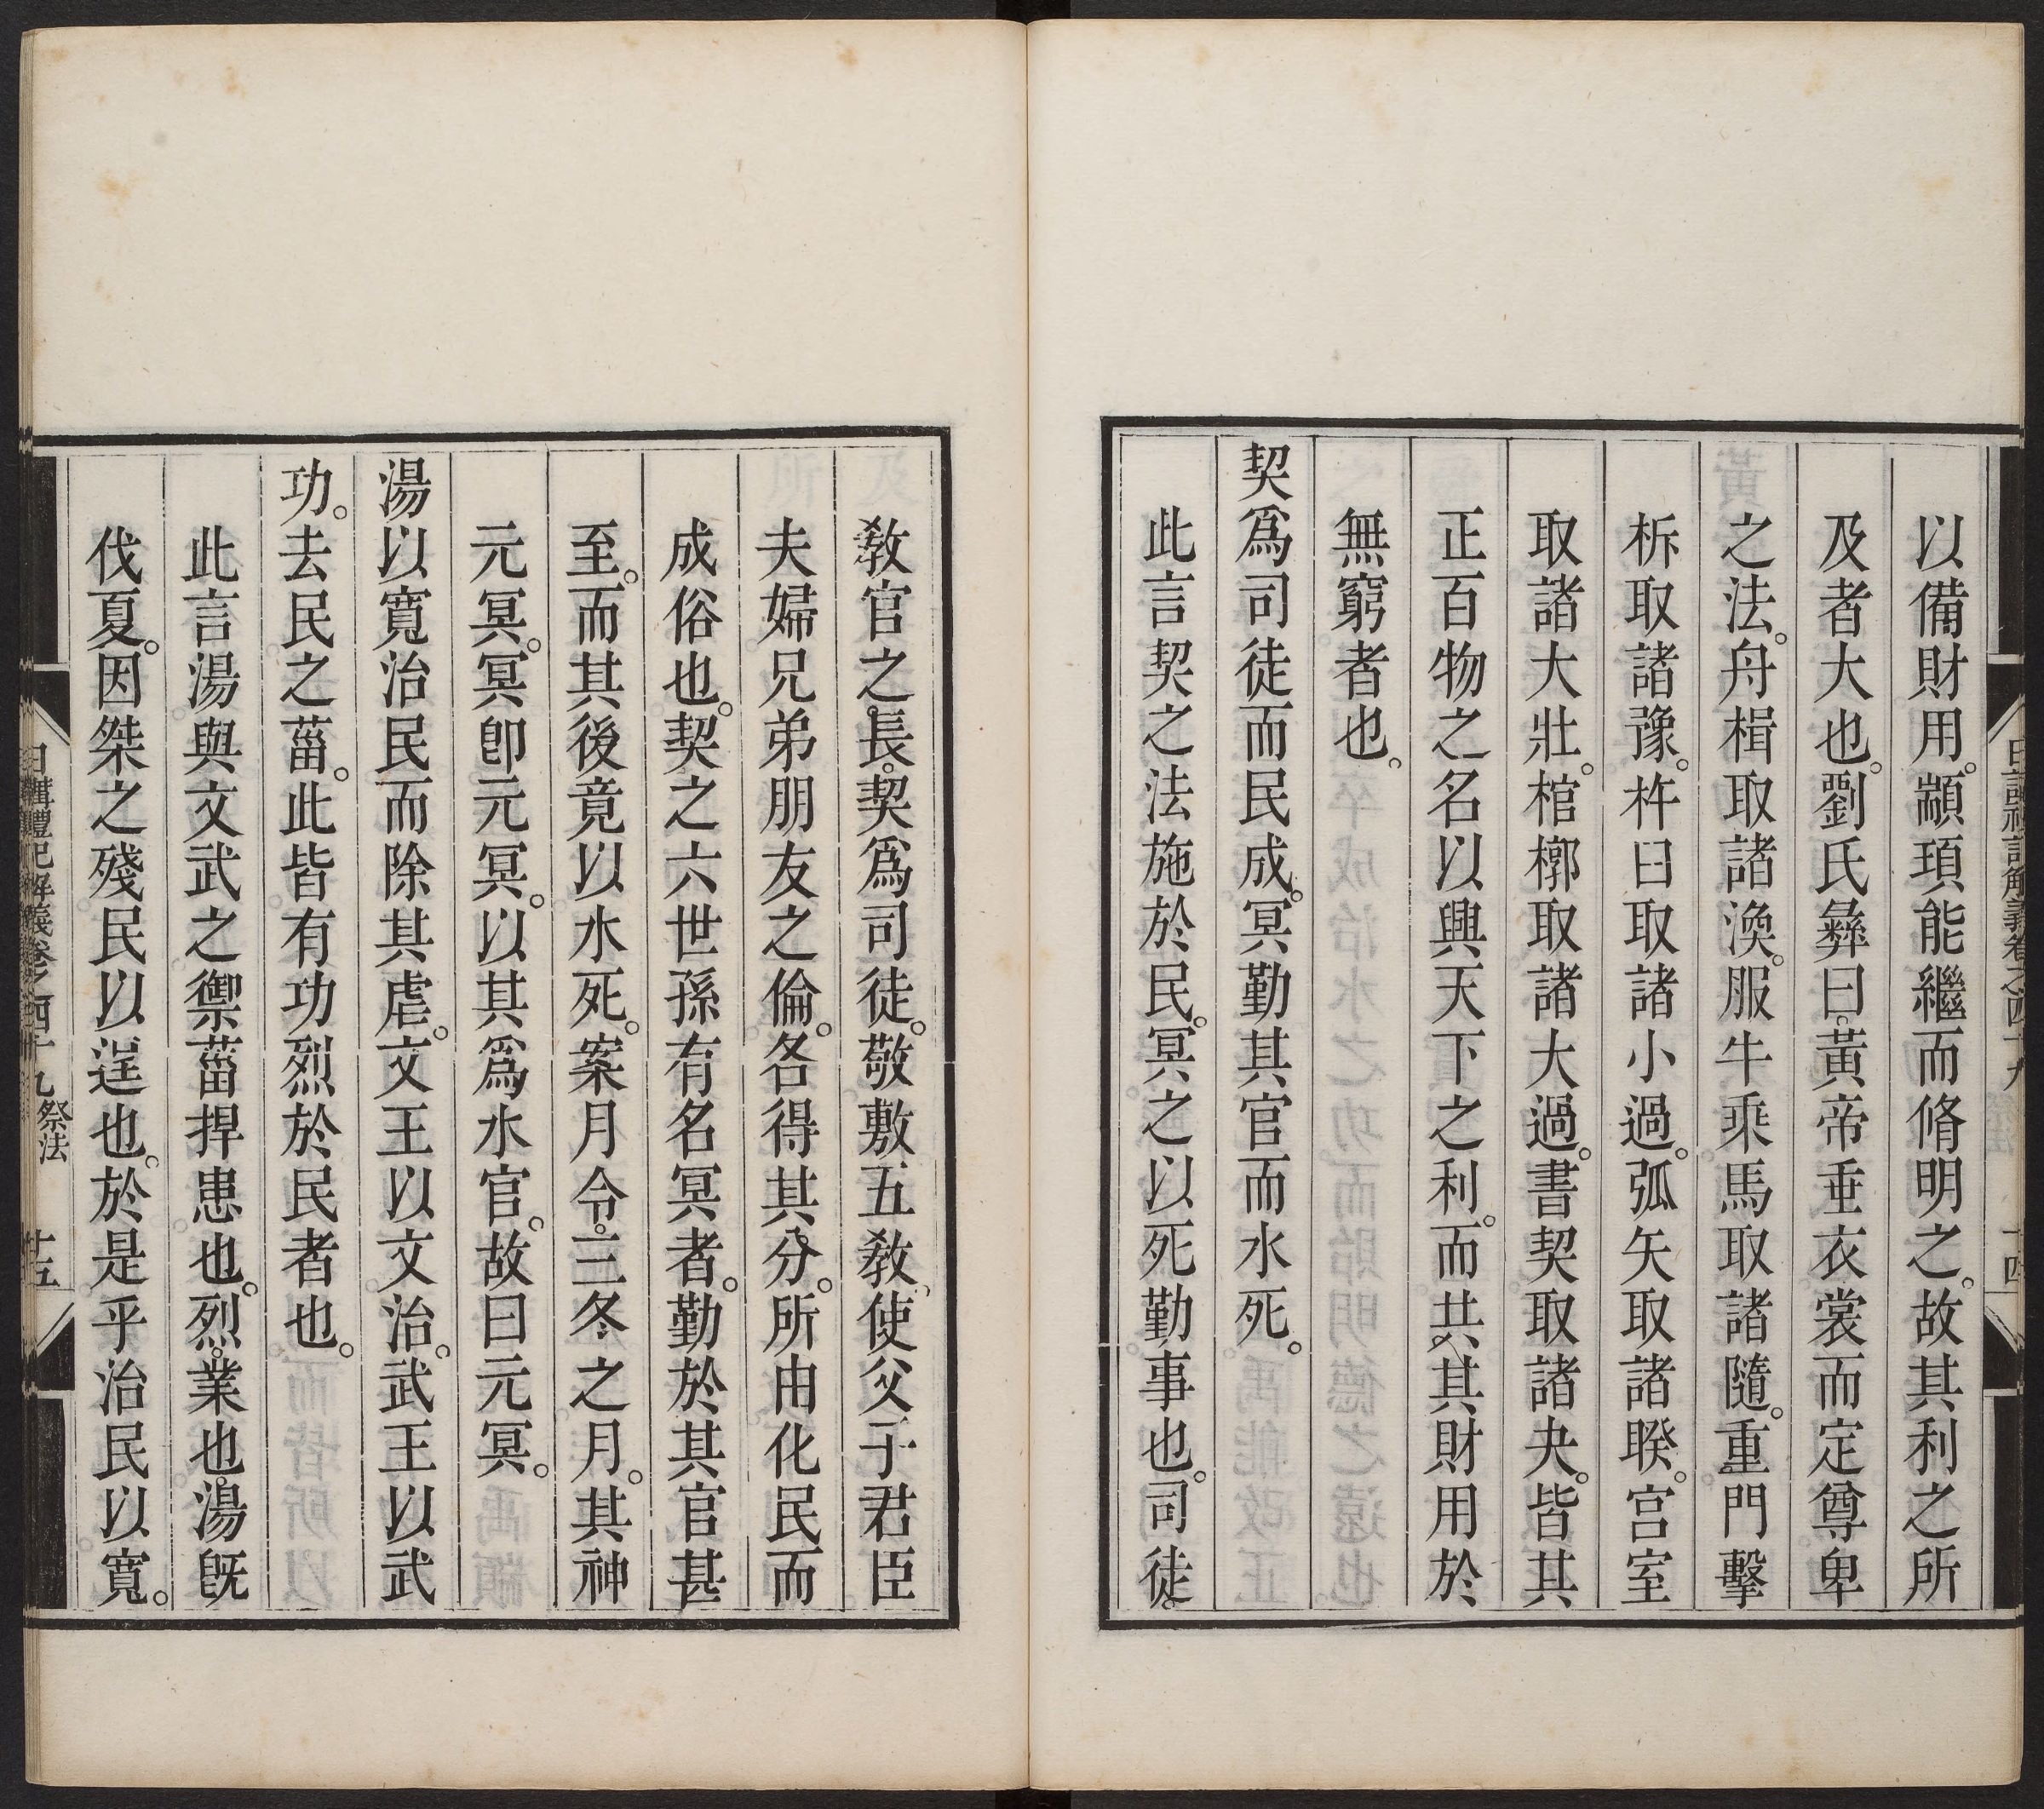 以備財用。顓頊能繼而脩明之。故其利之所
及者大也。劉氏彝曰。黃帝垂衣裳而定尊卑
之法。舟楫取諸渙。服牛乘馬取諸隨。重門擊
柝取諸豫。杵臼取諸小過。弧矢取諸睽。宫室
取諸大壯。棺槨取諸大過。書契取諸夬。皆其
正百物之名以興天下之利。而共其財用於
無窮者也。
契爲司徒而民成。冥勤其官而水死。
此言契之法施於民。冥之以死勤事也。司徒。
敎官之長。契爲司徒。敬敷五敎、使父子君臣
夫婦兄弟朋友之倫。各得其分。所由化民而
成俗也。契之六世孫有名冥者。勤於其官甚
至。而其後竟以水死。案月令。三冬之月。其神
元冥。冥卽元冥。以其爲水官。故曰元冥。
湯以寬治民而除其虐。文王以文治。武王以武
功。去民之菑。此皆有功烈於民者也。
此言湯與文武之禦菑捍患也。烈。業也。湯旣
伐夏。因桀之殘民以逞也。於是乎治民以寬。
日講禮記解義卷之四十九 祭法 十五